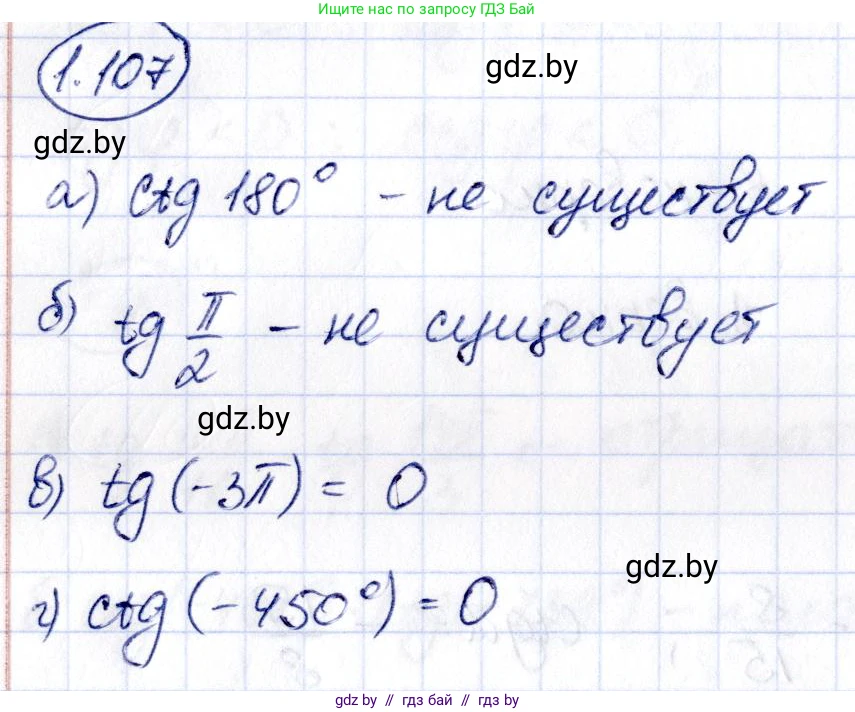 Ищите нас по запросу ГДЗ Бай
1.107
gdz.by
gdz.by
а) ctg 180° - не существует
б) tg π/2 - не существует
gdz.by
в) tg (-3π) = 0
gdz.by
г) ctg (-450°) = 0
gdz.by // гдз бай // gdz.by